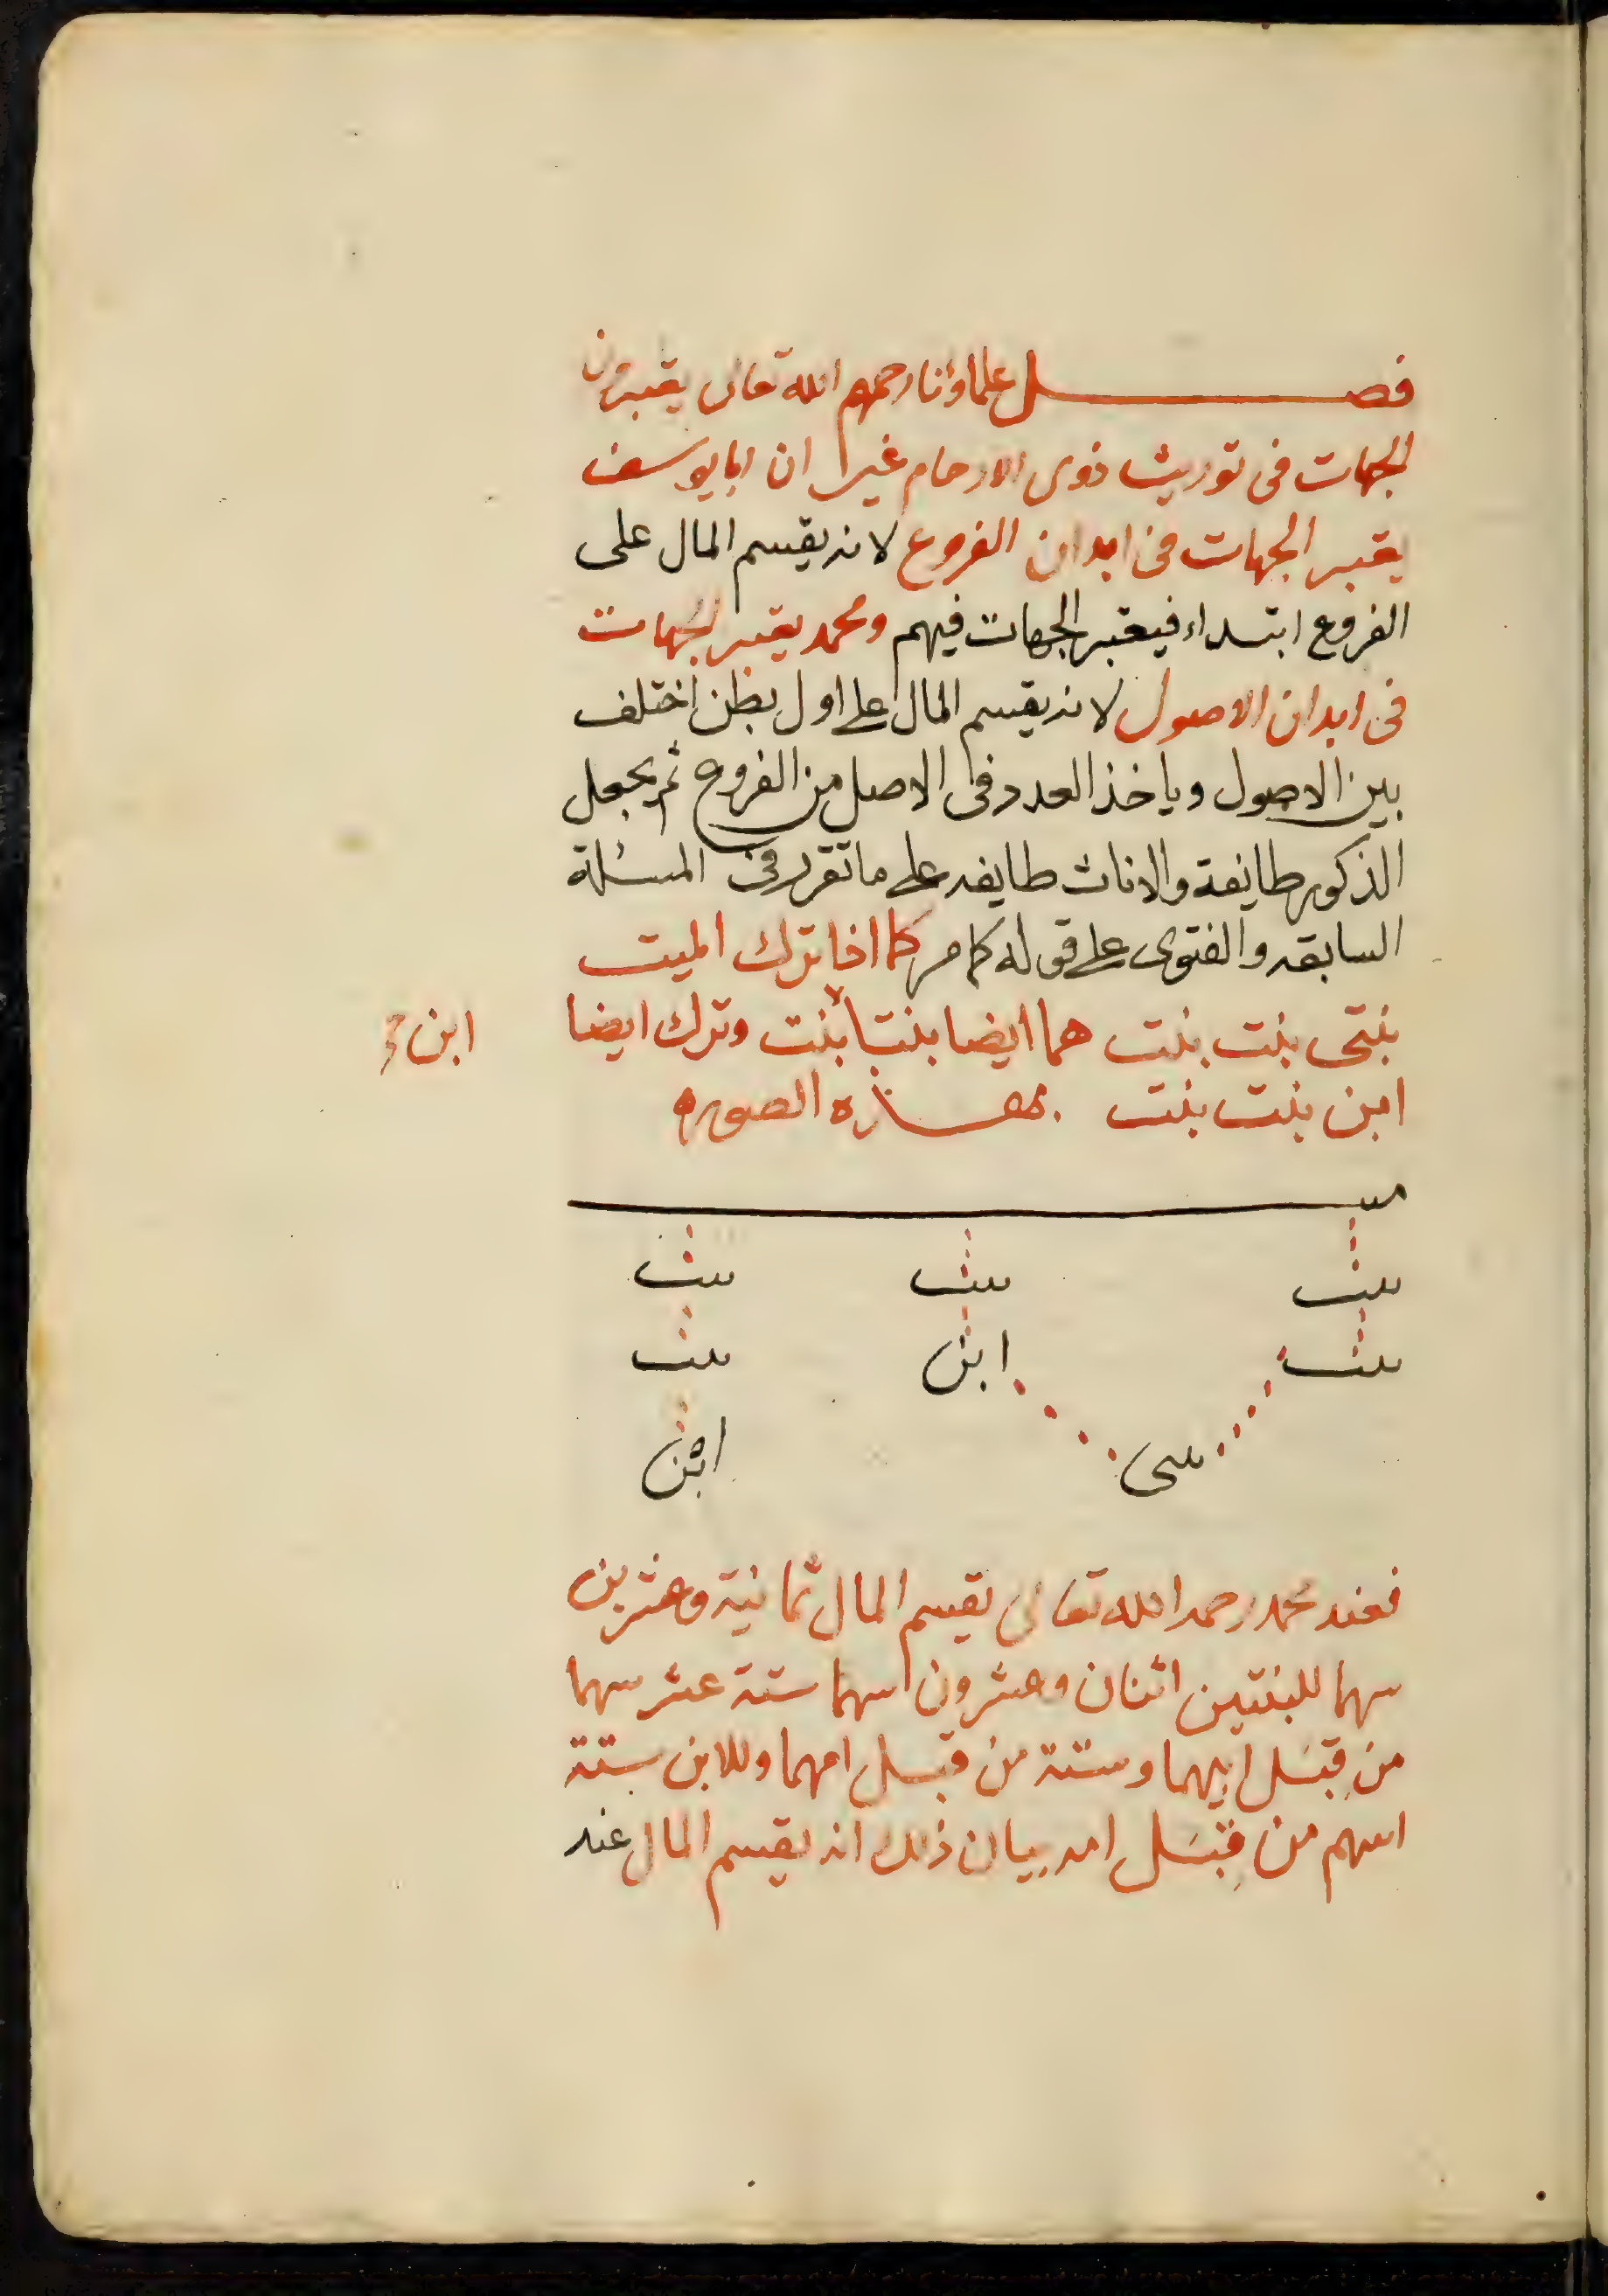 فصل علماؤنا رحمهم الله تعالى يعتبرون
الجهات فى توريث ذوى الارحام غير ان ابا يوسف
يعتبر الجهات فى ابدان الفروع لانه يقسم المال على
الفروع ابتداء فيعتبر الجهات فيهم ومحمد يعتبر الجهات
فى ابدان الاصول لانه يقسم المال على اول بطن اختلف
بين الاصول وياخذ العدد فى الاصل من الفروع ثم يجعل
الذكور طايفة والاناث طايفه على ما تقرر فى المسئلة
السابقه والفتوى على قوله كما مر كما اذا ترك الميت
بنتى بنت بنت هما ايضا بنتا بنت وترك ايضا
ابن
ابن بنت بنت بهذه الصوره
ميت
بنت بنت بنت
بنت ابن بنت
بنتى ابن
فعند محمد رحمه الله تعالى يقسم المال ثمانية وعشرين
سهما للبنتين اثنان وعشرون سهما ستة عشر سهما
من قِبَل ابيهما وستة من قبل امهما وللابن ستة
اسهم من قِبَل امه بيان ذلك انه يقسم المال عند